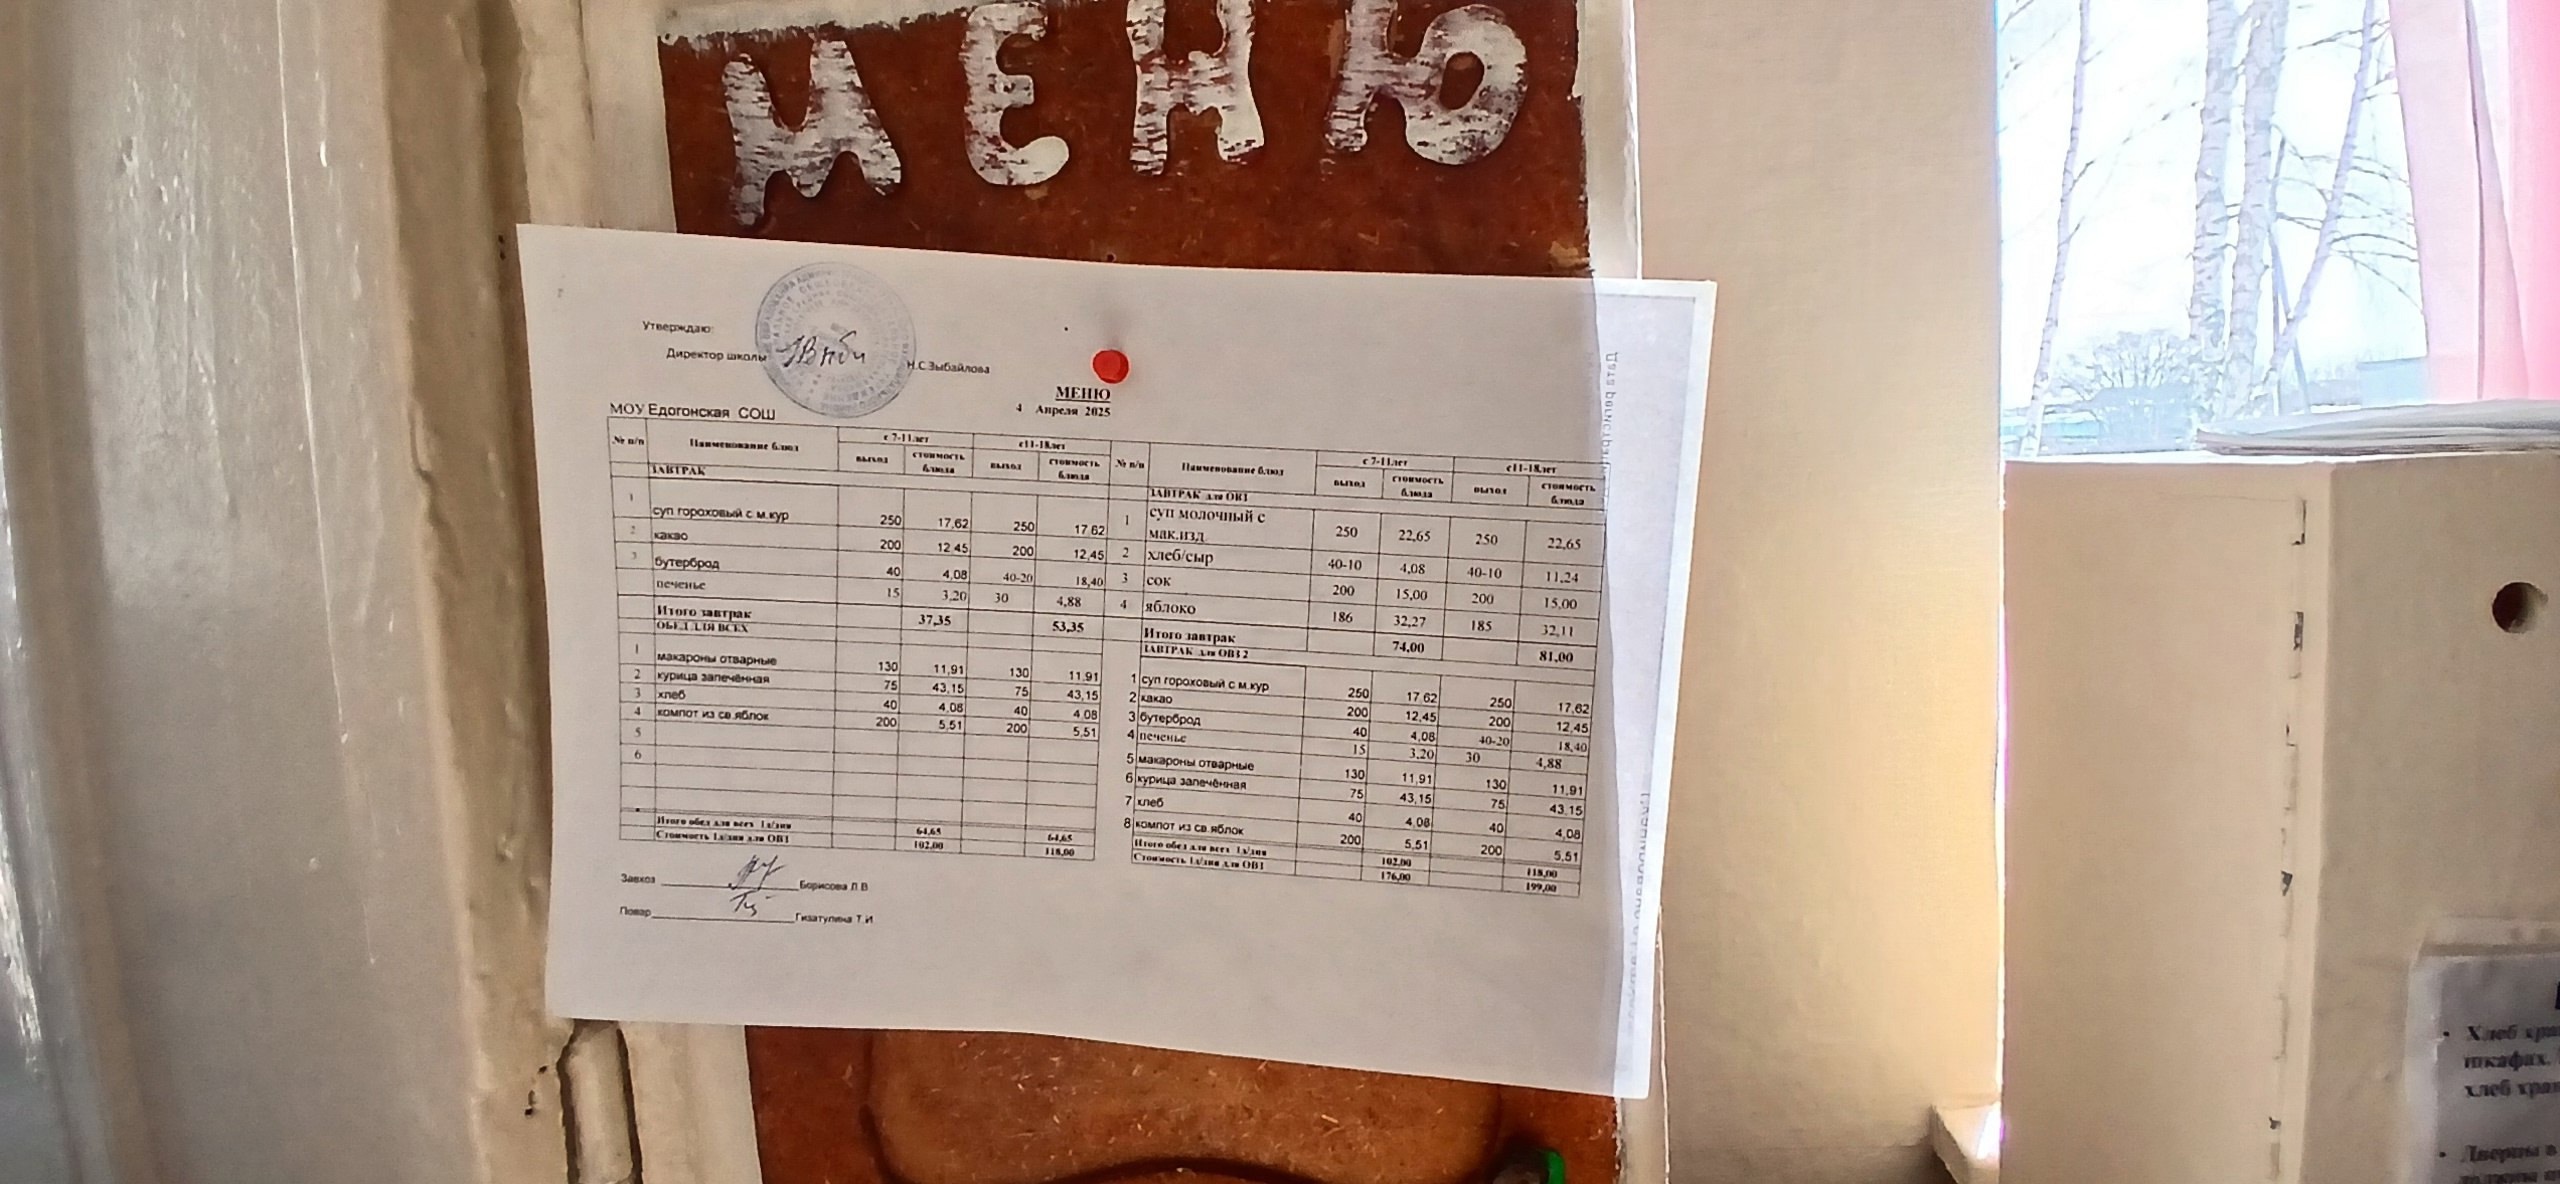 МЕНЮ
Утверждаю:
Директор школы Н.С.Зыбайлова
МЕНЮ
4 Апреля 2025
МОУ Едогонская СОШ
№ п/п Наименование блюд с 7-11лет с11-18лет
выход стоимость блюда выход стоимость блюда
ЗАВТРАК
1 суп гороховый с м.кур 250 17,62 250 17,62
2 какао 200 12,45 200 12,45
3 бутерброд 40 4,08 40-20 18,40
печенье 15 3,20 30 4,88
Итого завтрак 37,35 53,35
ОБЕД ДЛЯ ВСЕХ
1 макароны отварные 130 11,91 130 11,91
2 курица запечённая 75 43,15 75 43,15
3 хлеб 40 4,08 40 4,08
4 компот из св.яблок 200 5,51 200 5,51
5
6
Итого обед для всех 1д/дня 64,65 64,65
Стоимость 1д/дня для ОВ1 102,00 118,00
Завхоз Борисова Л.В
Повар Гизатулина Т.И
№ п/п Наименование блюд с 7-11лет с11-18лет
выход стоимость блюда выход стоимость блюда
ЗАВТРАК для ОВ1
1 суп молочный с
мак.изд 250 22,65 250 22,65
2 хлеб/сыр 40-10 4,08 40-10 11,24
3 сок 200 15,00 200 15,00
4 яблоко 186 32,27 185 32,11
Итого завтрак 74,00 81,00
ЗАВТРАК для ОВЗ 2
1 суп гороховый с м.кур 250 17,62 250 17,62
2 какао 200 12,45 200 12,45
3 бутерброд 40 4,08 40-20 18,40
4 печенье 15 3,20 30 4,88
5 макароны отварные 130 11,91 130 11,91
6 курица запечённая 75 43,15 75 43,15
7 хлеб 40 4,08 40 4,08
8 компот из св.яблок 200 5,51 200 5,51
Итого обед для всех 1д/дня 102,00 118,00
Стоимость 1д/дня для ОВ1 176,00 199,00
• Хлеб
шкафах.
хлеб
• Дверцы в